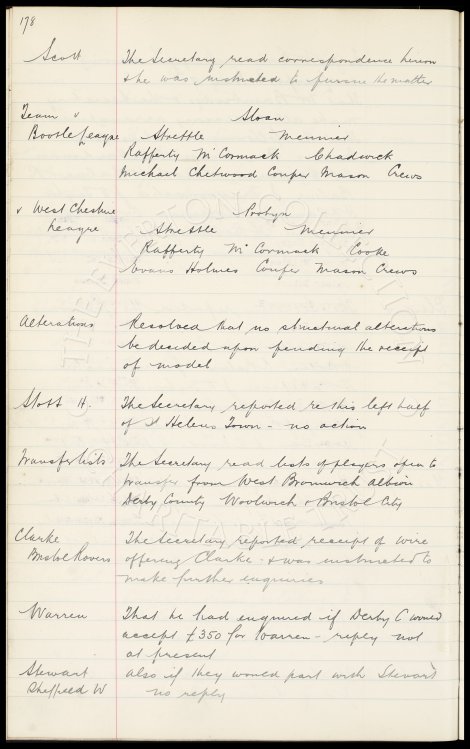 178
Scott The Secretary read correspondence hereon
& he was instructed to pursue the matter
Team v Sloan
Bootle League Strettle Meunier
Rafferty McCormack Chadwick
Michael Chetwood Couper Mason Crews
v West Cheshire Probyn
League Strettle Meunier
Rafferty McCormack Cooke
Evans Holmes Couper Mason Crews
Alterations Resolved that no structural alterations
be decided upon pending the receipt
of model
Stott H. The Secretary reported re this left half
of St Helens Town - no action
Transfer lists The Secretary read lists of players open to
transfer from West Bromwich Albion
Derby County Woolwich & Bristol City
Clarke The Secretary reported receipt of wire
Bristol Rovers offering Clarke - & was instructed to
make further enquiries
Warren That he had enquired if Derby C would
accept £350 for Warren - reply not
at present
Stewart also if they would part with Stewart
Sheffield W no reply